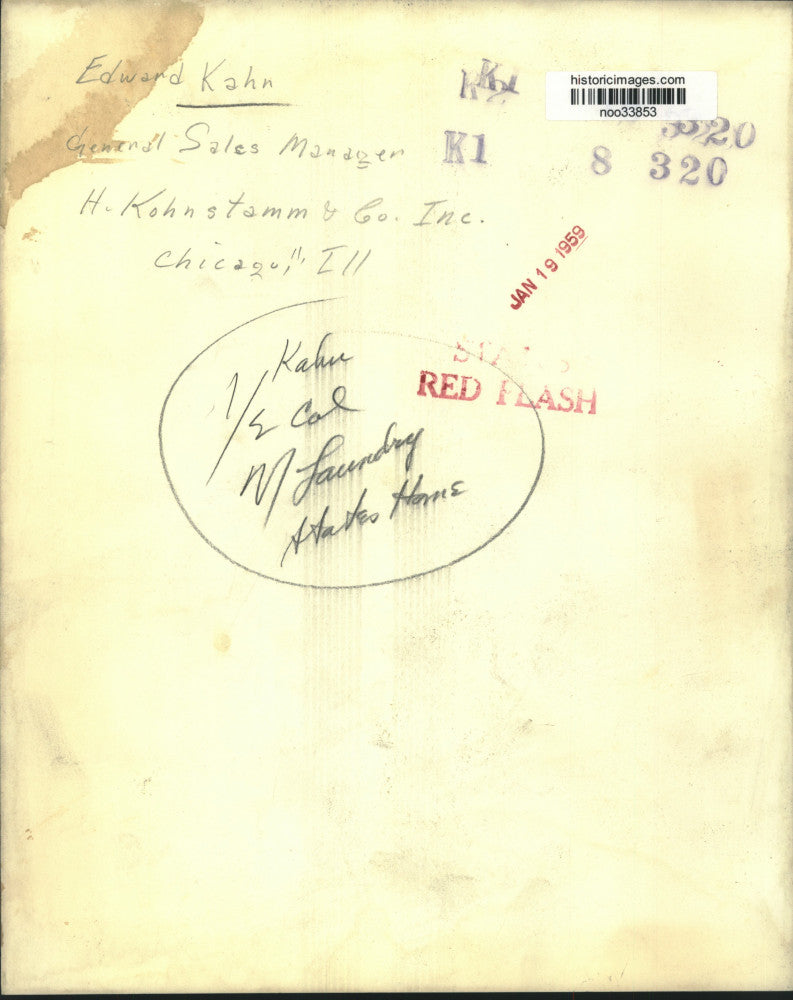 Edward Kahn
General Sales Manager
H. Kohnstamm & Co. Inc.
Chicago, Ill
historicimages.com
noo33853
K1
8 320
JAN 19 1959
RED FLASH
Kahn
1/2 Col
M Laundry
States Home